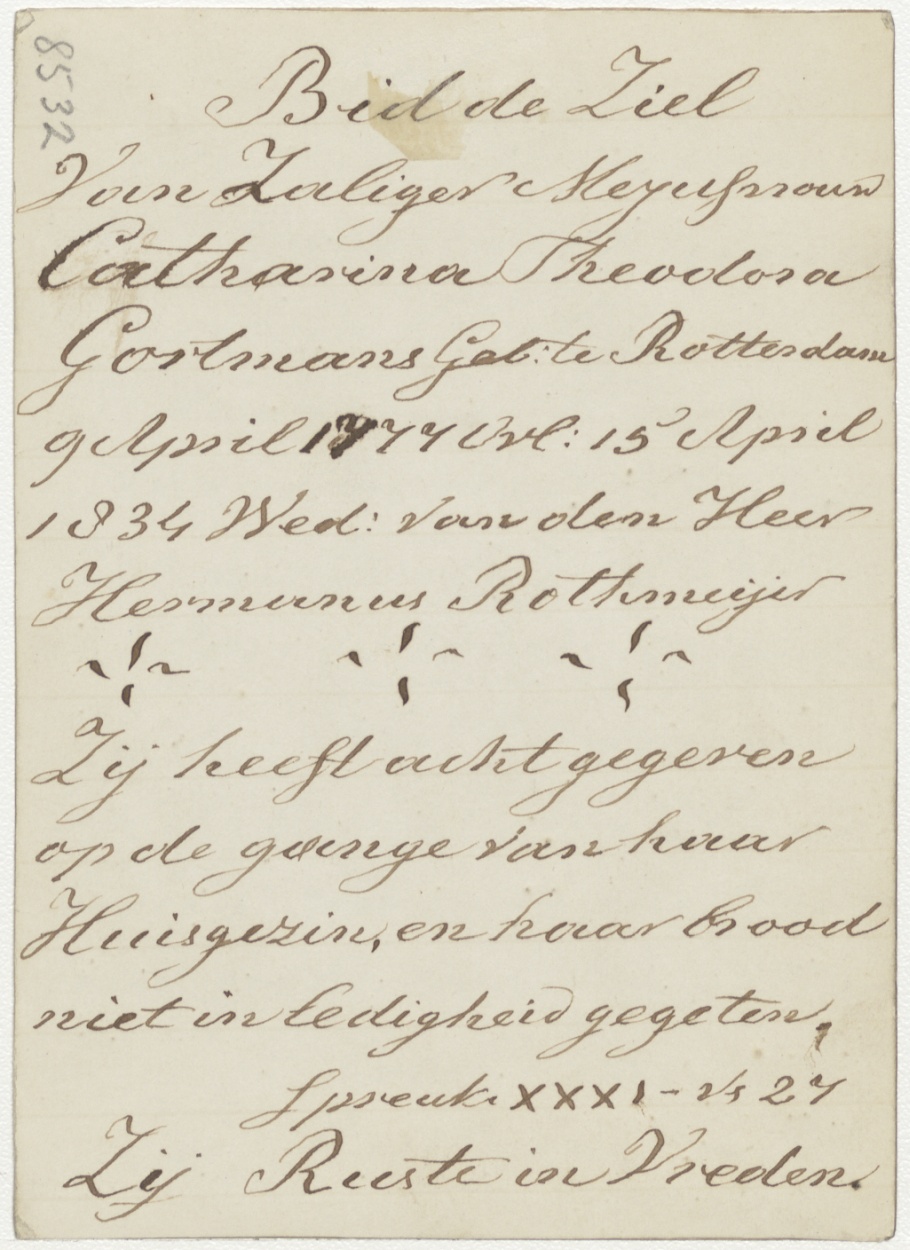 8532
Bid de Ziel
Van Zaliger Mejufrouw
Catharina Theodora
Gortmans Geb: te Rotterdam
9 April 1777 Ovl: 15 April
1834 Wed: van den Heer
Hermanus Rothmeijer
Zij heeft acht gegeven
op de gange van haar
Huisgezin, en haar brood
niet in ledigheid gegeten,
Spreuk. XXXI - Vs 27
Zij Ruste in Vreden.